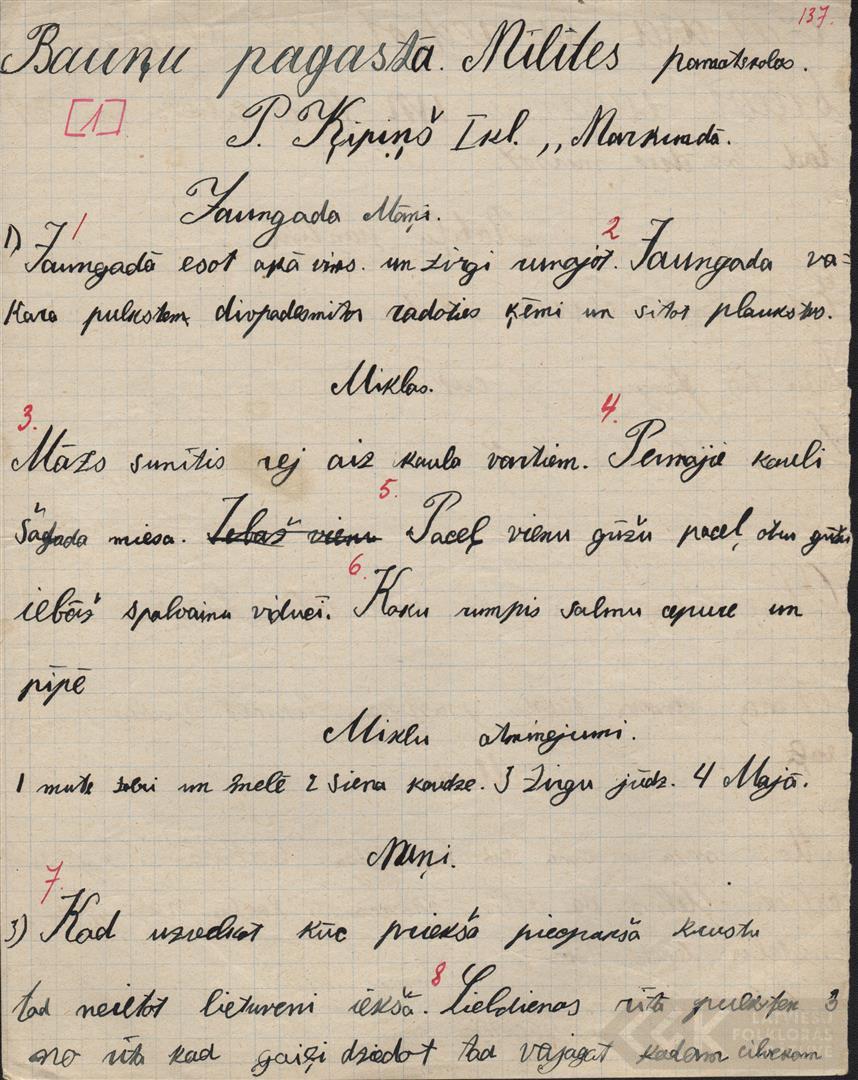 137.
Bauņu pagastā. Mīlītes pamatskolas.
[1]
P. Ķipiņš I kl. „Markuadā.
Jaungada Māņi.
1) 1 Jaungadā esot akā vīns. un zirgi runājot. 2 Jaungada va=
kara pulksten divpadesmitos radoties ķēmi un sitot plaukstas.
Miklas.
3. Māzs sunītis rej aiz kaula vārtiem. 4. Pernajie kauli
šāgada miesa. Iebaž vienu 5. Paceļ vienu gūžu paceļ otru gūžu
iebāž spalvainu viducī. 6. Kaķu rumpis salmu cepure un
pīpē
Miklu atminējumi.
1 mute zobi un mēlē 2 siena kaudze. 3 Zirgu jūdz. 4 Majā.
Maņi.
7. 3) Kad uzvelkot kūc priekšā piecparša krustu
tad neietot lietuveni iekšā. 8 Lieldienas rītā pulksten 3
no rīta kad gaiļi dziedot tad vajagat kādam cilvekam